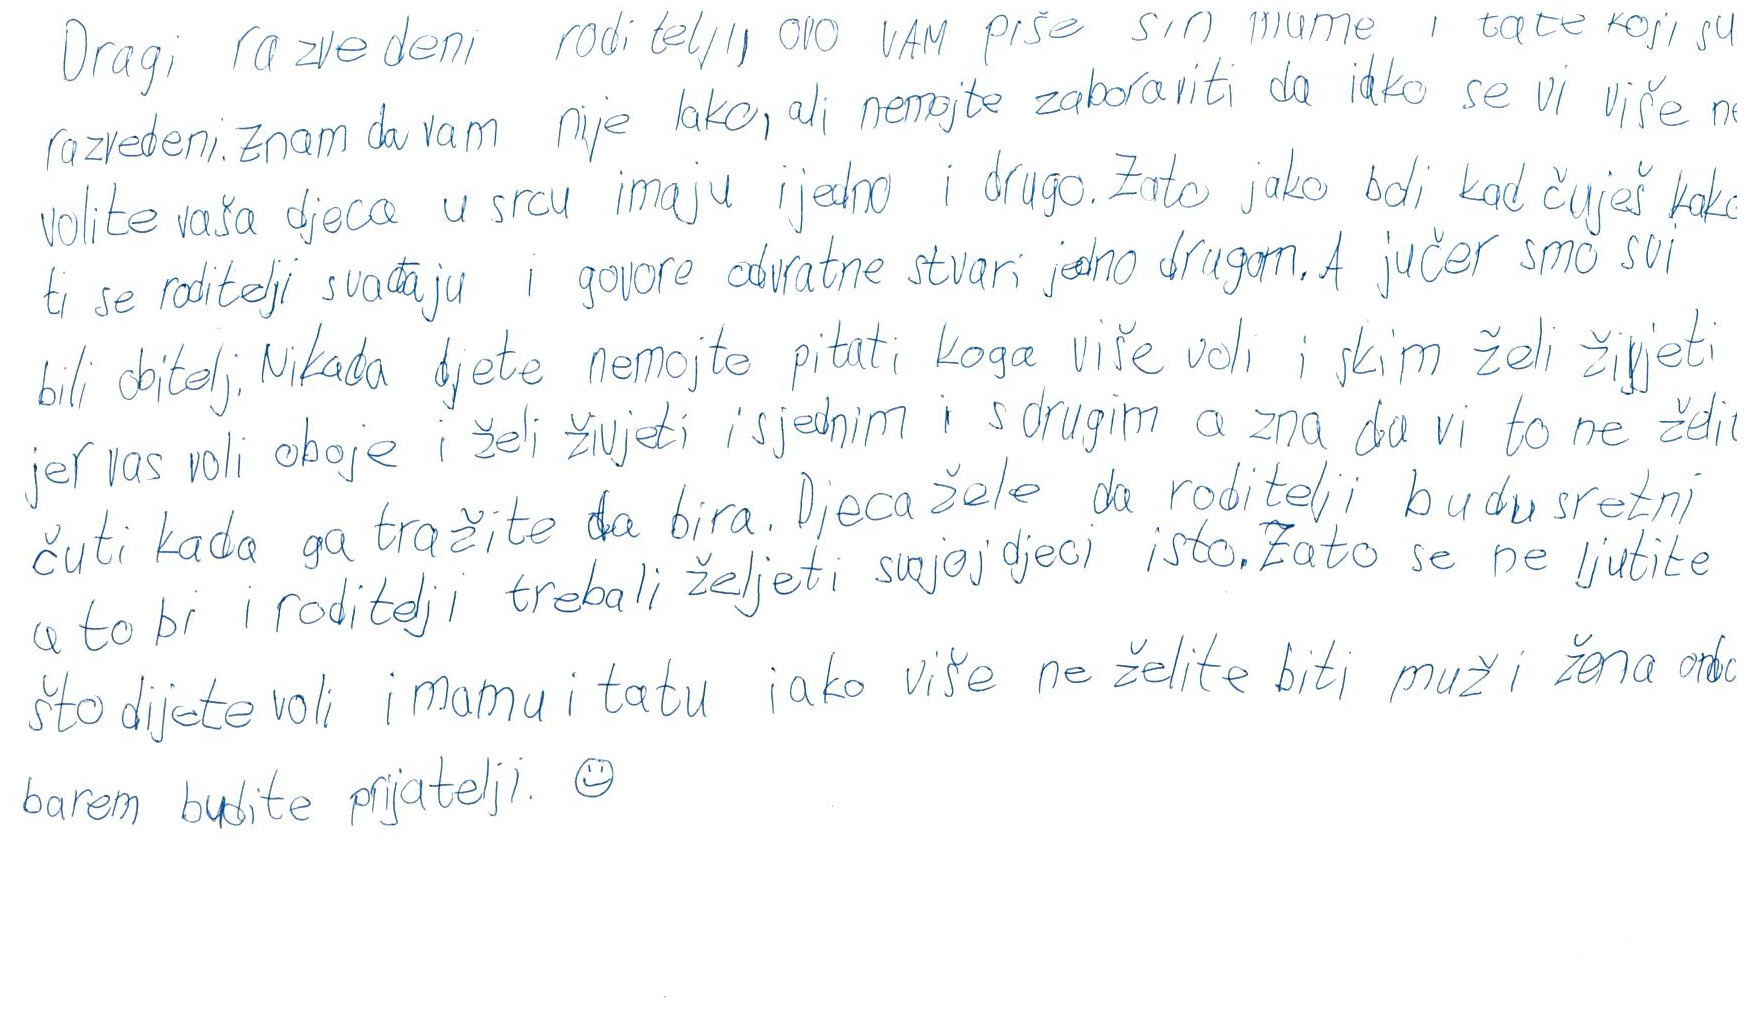 Dragi razvedeni roditelji, ovo VAM piše sin mame i tate koji su
razvedeni. Znam da vam nije lako, ali nemojte zaboraviti da iako se vi više ne
volite vaša djeca u srcu imaju i jedno i drugo. Zato jako boli kad čuješ kako
ti se roditelji svađaju i govore odvratne stvari jedno drugom. A jučer smo svi
bili obitelj. Nikada djete nemojte pitati koga više voli i skim želi živjeti
jer vas voli oboje i želi živjeti i sjednim i s drugim a zna da vi to ne
čuti kada ga tražite da bira. Djeca žele da roditelji budu sretni
a to bi i roditelji trebali željeti svojoj djeci isto. Zato se ne ljutite
što dijete voli i mamu i tatu iako više ne želite biti muž i žena
barem budite prijatelji. ☺